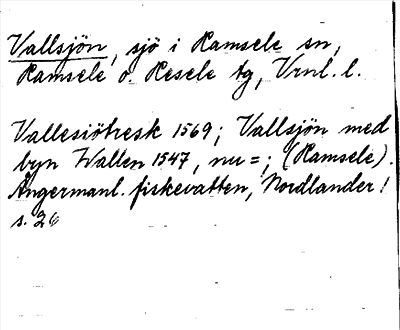 Vallsjön, sjö i Ramsele sn,
Ramsele o. Resele tg, Vrnl. l.
Vallesiötresk 1569; Vallsjön med
byn Wallen 1547, nu =; (Ramsele).
Ångermanl. fiskevatten, Nordlander 1
s. 26